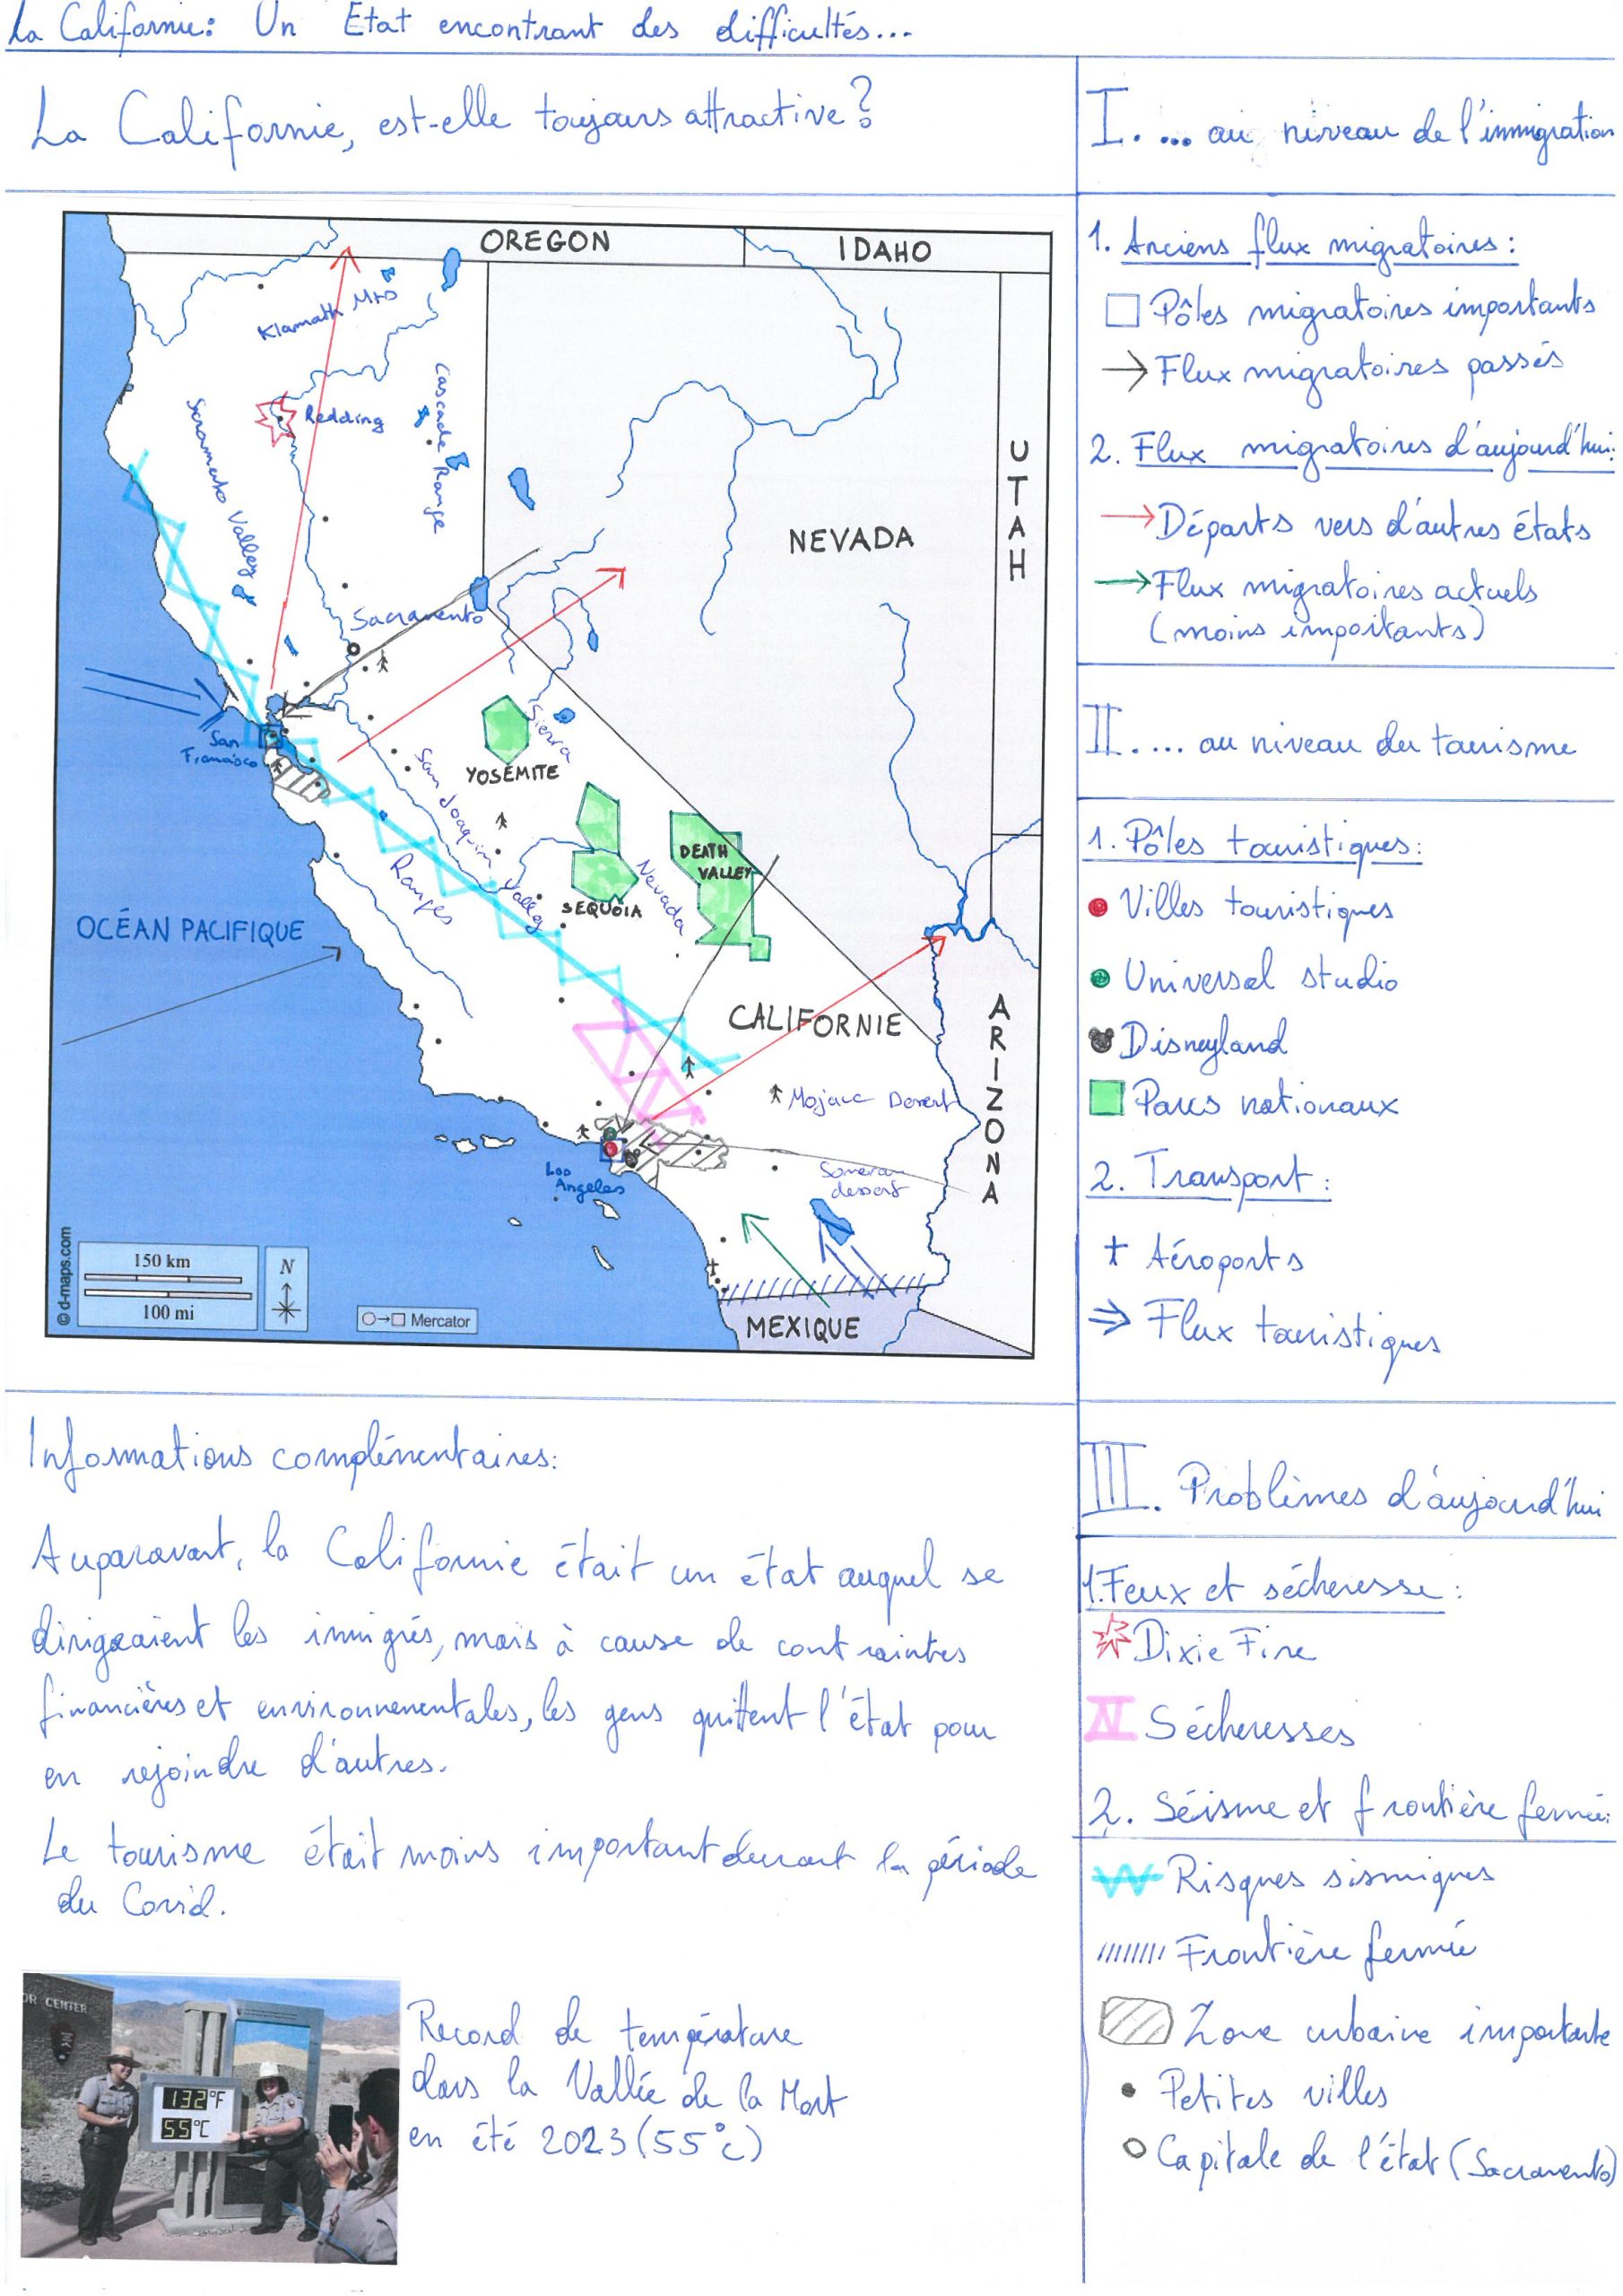 La Californie: Un Etat encontrant des difficultés...
La Californie, est-elle toujours attractive?
I. ... au niveau de l'immigration
OREGON
IDAHO
Klamath Mts
Cascade Range
Redding
Sacramento Valley
UTAH
NEVADA
Sacramento
San Francisco
YOSEMITE
Sierra
Nevada
San Joaquin Valley
SEQUOIA
DEATH
VALLEY
Ranges
OCÉAN PACIFIQUE
CALIFORNIE
ARIZONA
Mojave Desert
Los
Angeles
dessert
MEXIQUE
© d-maps.com
150 km
100 mi
N
Mercator
1. Anciens flux migratoires:
Pôles migratoires importants
Flux migratoires passés
2. Flux migratoires d'aujourd'hui:
Départs vers d'autres états
Flux migratoires actuels
(moins importants)
II. ... au niveau du tourisme
1. Pôles touristiques:
Villes touristiques
Universal studio
Disneyland
Parcs nationaux
2. Transport:
Aéroports
Flux touristiques
III. Problèmes d'aujourd'hui
1. Feux et sécheresse:
Dixie Fire
Sécheresses
2. Séisme et frontière fermée:
Risques sismiques
Frontière fermée
Zone urbaine importante
Petites villes
Capitale de l'état (Sacramento)
Informations complémentaires:
Auparavant, la Californie était un état auquel se
dirigeaient les immigrés, mais à cause de contraintes
financières et environnementales, les gens quittent l'état pour
en rejoindre d'autres.
Le tourisme était moins important durant la période
du Covid.
OR CENTER
132°F
55°C
Record de température
dans la Vallée de la Mort
en été 2023 (55°c)